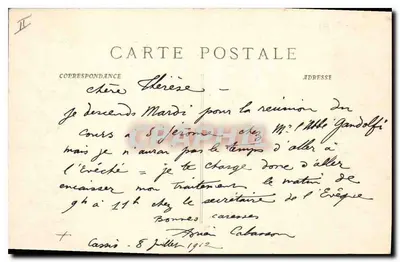 II
CARTE POSTALE
CORRESPONDANCE
ADRESSE
chère Thérèse —
je descends Mardi pour la réunion du
cours à S. Jérôme chez Mr. l'Abbé Gandolfi
mais je n'aurai pas le temps d'aller à
l'Evêché = je te charge donc d'aller
encaisser mon traitement le matin de
9h à 11h chez le secrétaire de l'Evêque
Bonnes caresses
Cabasson
Cassis - 8 Juillet 1912